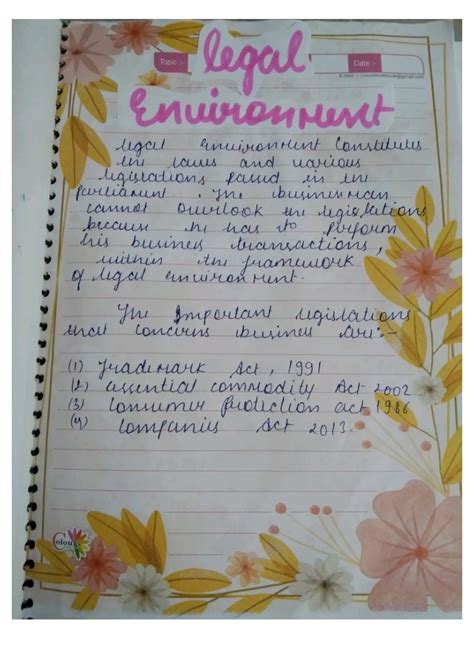 Topic :-
Date :-
legal
Environment
legal Environment Constitutes
the laws and various
legislations passed in the
parliament. The businessman
cannot overlook the legislations
because he has to perform
his business transactions,
within the framework
of legal environment.
The Important legislations
that concerns business are:-
(1) Trademark Act, 1991
(2) essential commodity Act 2002
(3) Consumer Protection act 1986
(4) Companies Act 2013.
Colour